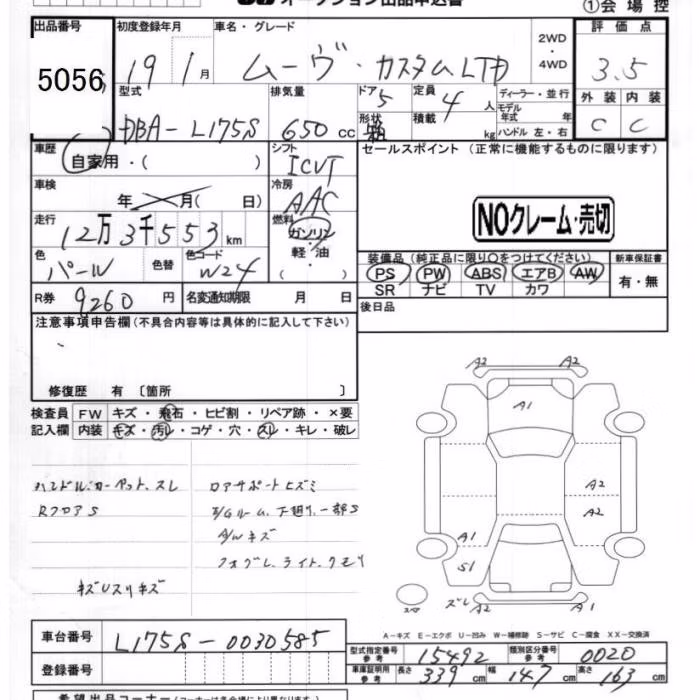 オークション出品申込書
①会場控
出品番号
5056
初度登録年月
19 1月
車名・グレード
ムーヴ・カスタムLTD
2WD
・
4WD
評価点
3.5
外装 内装
C C
型式
DBA-L175S
排気量
650 cc
ドア 5
形状 箱
定員 4人
積載 kg
ディーラー・並行
モデル
年式 年
ハンドル 左・右
車歴
自家用・( )
シフト
ICVT
セールスポイント(正常に機能するものに限ります)
NOクレーム・売切
車検
年 月( 日)
冷房
AAC
走行
12万3千553km
燃料
ガソリン
軽・油
色
パールW
色替
色コード
W24
装備品(純正品に限り○をつけてください)
PS PW ABS エアB AW
SR ナビ TV カワ
新車保証書
有・無
R券 9260円
名変通知期限 月 日
後日品
注意事項申告欄(不具合内容等は具体的に記入して下さい)
修復歴 有〔箇所 〕
検査員 FW キズ・飛石・ヒビ割・リペア跡・×要
記入欄 内装 キズ・汚レ・コゲ・穴・スレ・キレ・破レ
ハンドル.カーペット.スレ
RフロアS
キズUスリキズ
ロアサポートヒズミ
E/Gルーム.下廻り.一部S
A/Wキズ
フォグL.ライト.クモリ
A2 A2
A1
A2
A2
A1
S1
スペア
ズレ A2 A2
A-キズ E-エクボ U-凹み W-補修跡 S-サビ C-腐食 XX-交換済
車台番号 L175S-0030585
登録番号
型式指定番号 参考 15492
類別区分番号 参考 0020
車庫証明用 参考 長さ 339cm 幅 147cm 高さ 163cm
希望出品コーナー(コーナーは各会場により異なります)